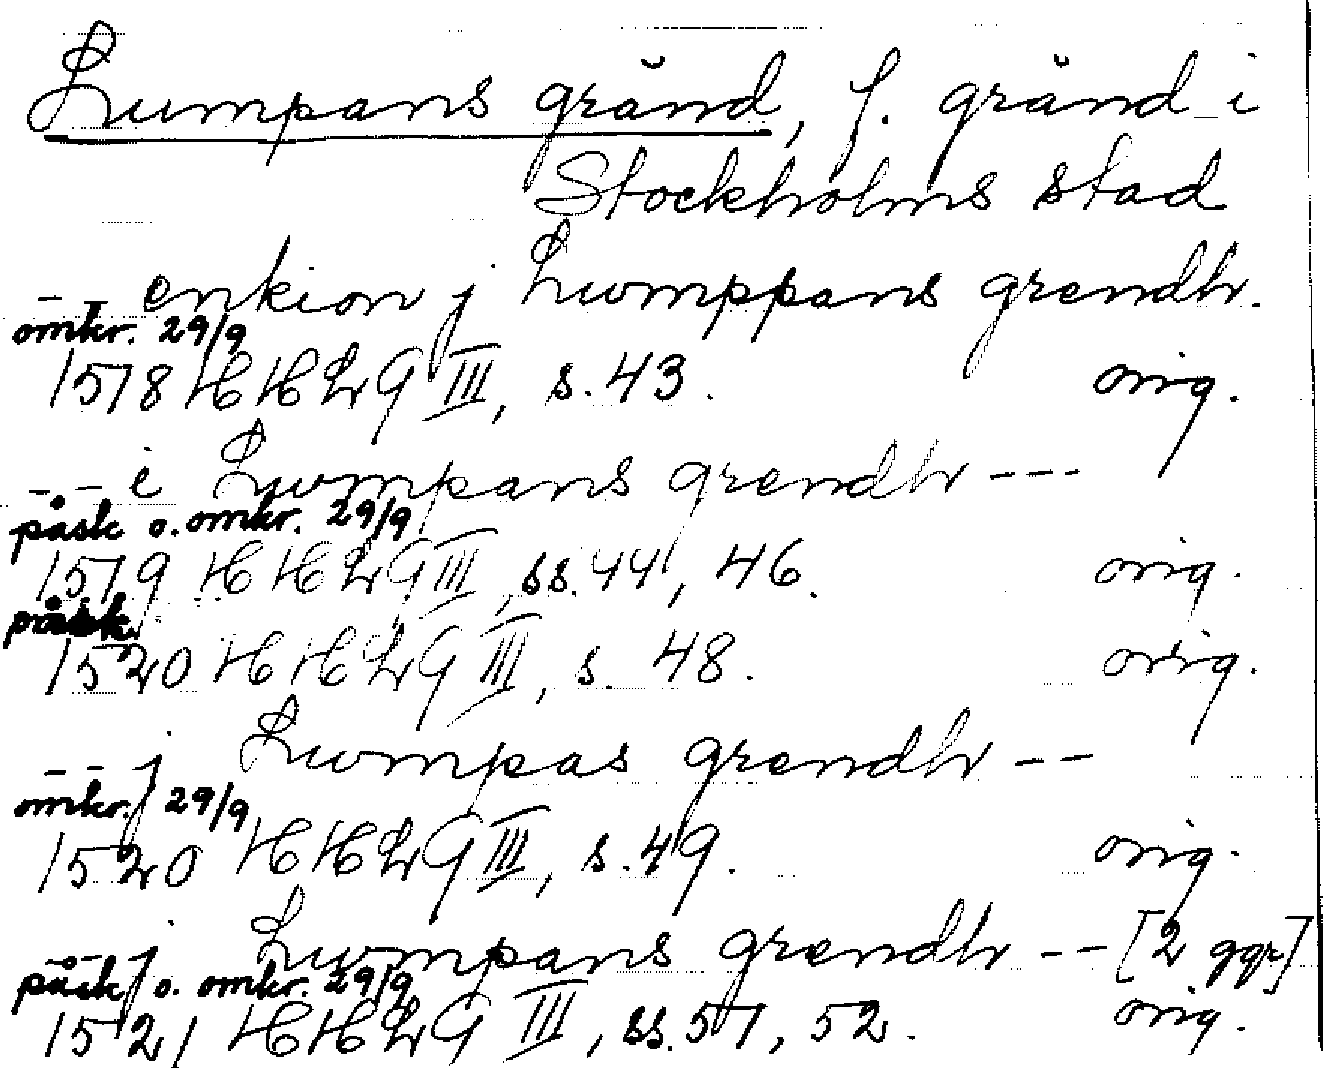 Lumpans gränd, f. gränd i
Stockholms stad
-- enkion j Lwmppans grendh.
omkr. 29/9
1518 HHLG III, s. 43. orig.
--- i Lwmpans grendh ---
påsk o. omkr. 29/9
1519 HHLG III, ss. 44, 46. orig.
påsk
1520 HHLG III, s. 48. orig.
--- j Lwmpas grendh --
omkr. 29/9
1520 HHLG III, s. 49. orig.
--- j Lwmpans grendh -- [2 ggr]
påsk o. omkr. 29/9
1521 HHLG III, ss. 51, 52. orig.